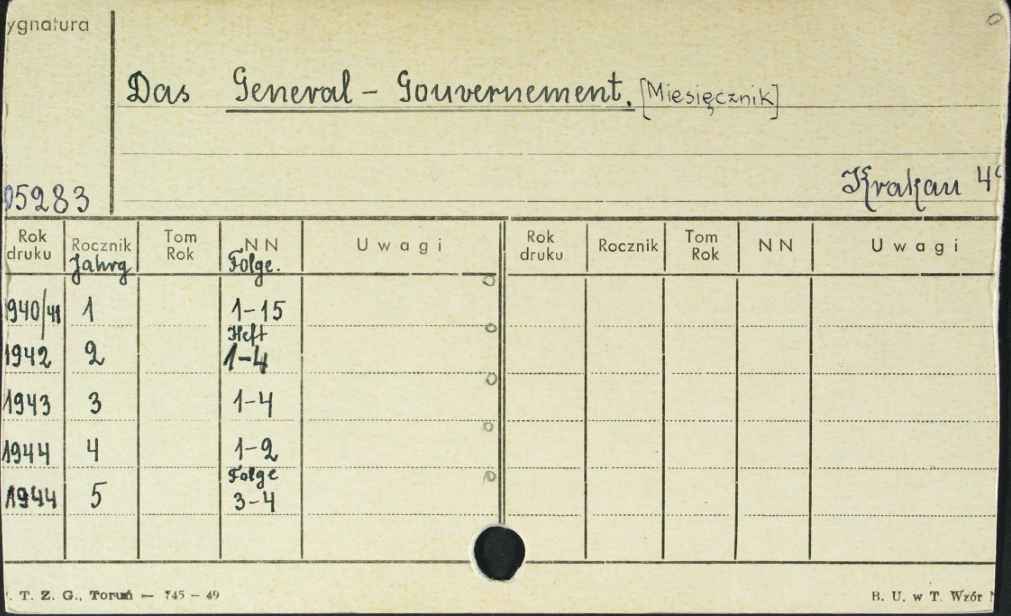 ygnatura
Das General-Gouvernement. [Miesięcznik]
05283
Krakau 4°
Rok druku Rocznik Tom Rok NN Uwagi Rok druku Rocznik Tom Rok NN Uwagi
Jahrg Folge.
1940/41 1 1-15
Heft
1942 2 1-4
1943 3 1-4
1944 4 1-2
Folge
1944 5 3-4
T. Z. G., Toruń — 745 - 49
B. U. w T. Wzór